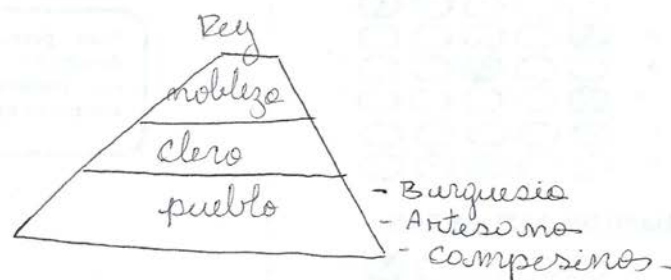 Rey
nobleza
clero
pueblo
- Burguesia
- Artesanos
- campesinos -